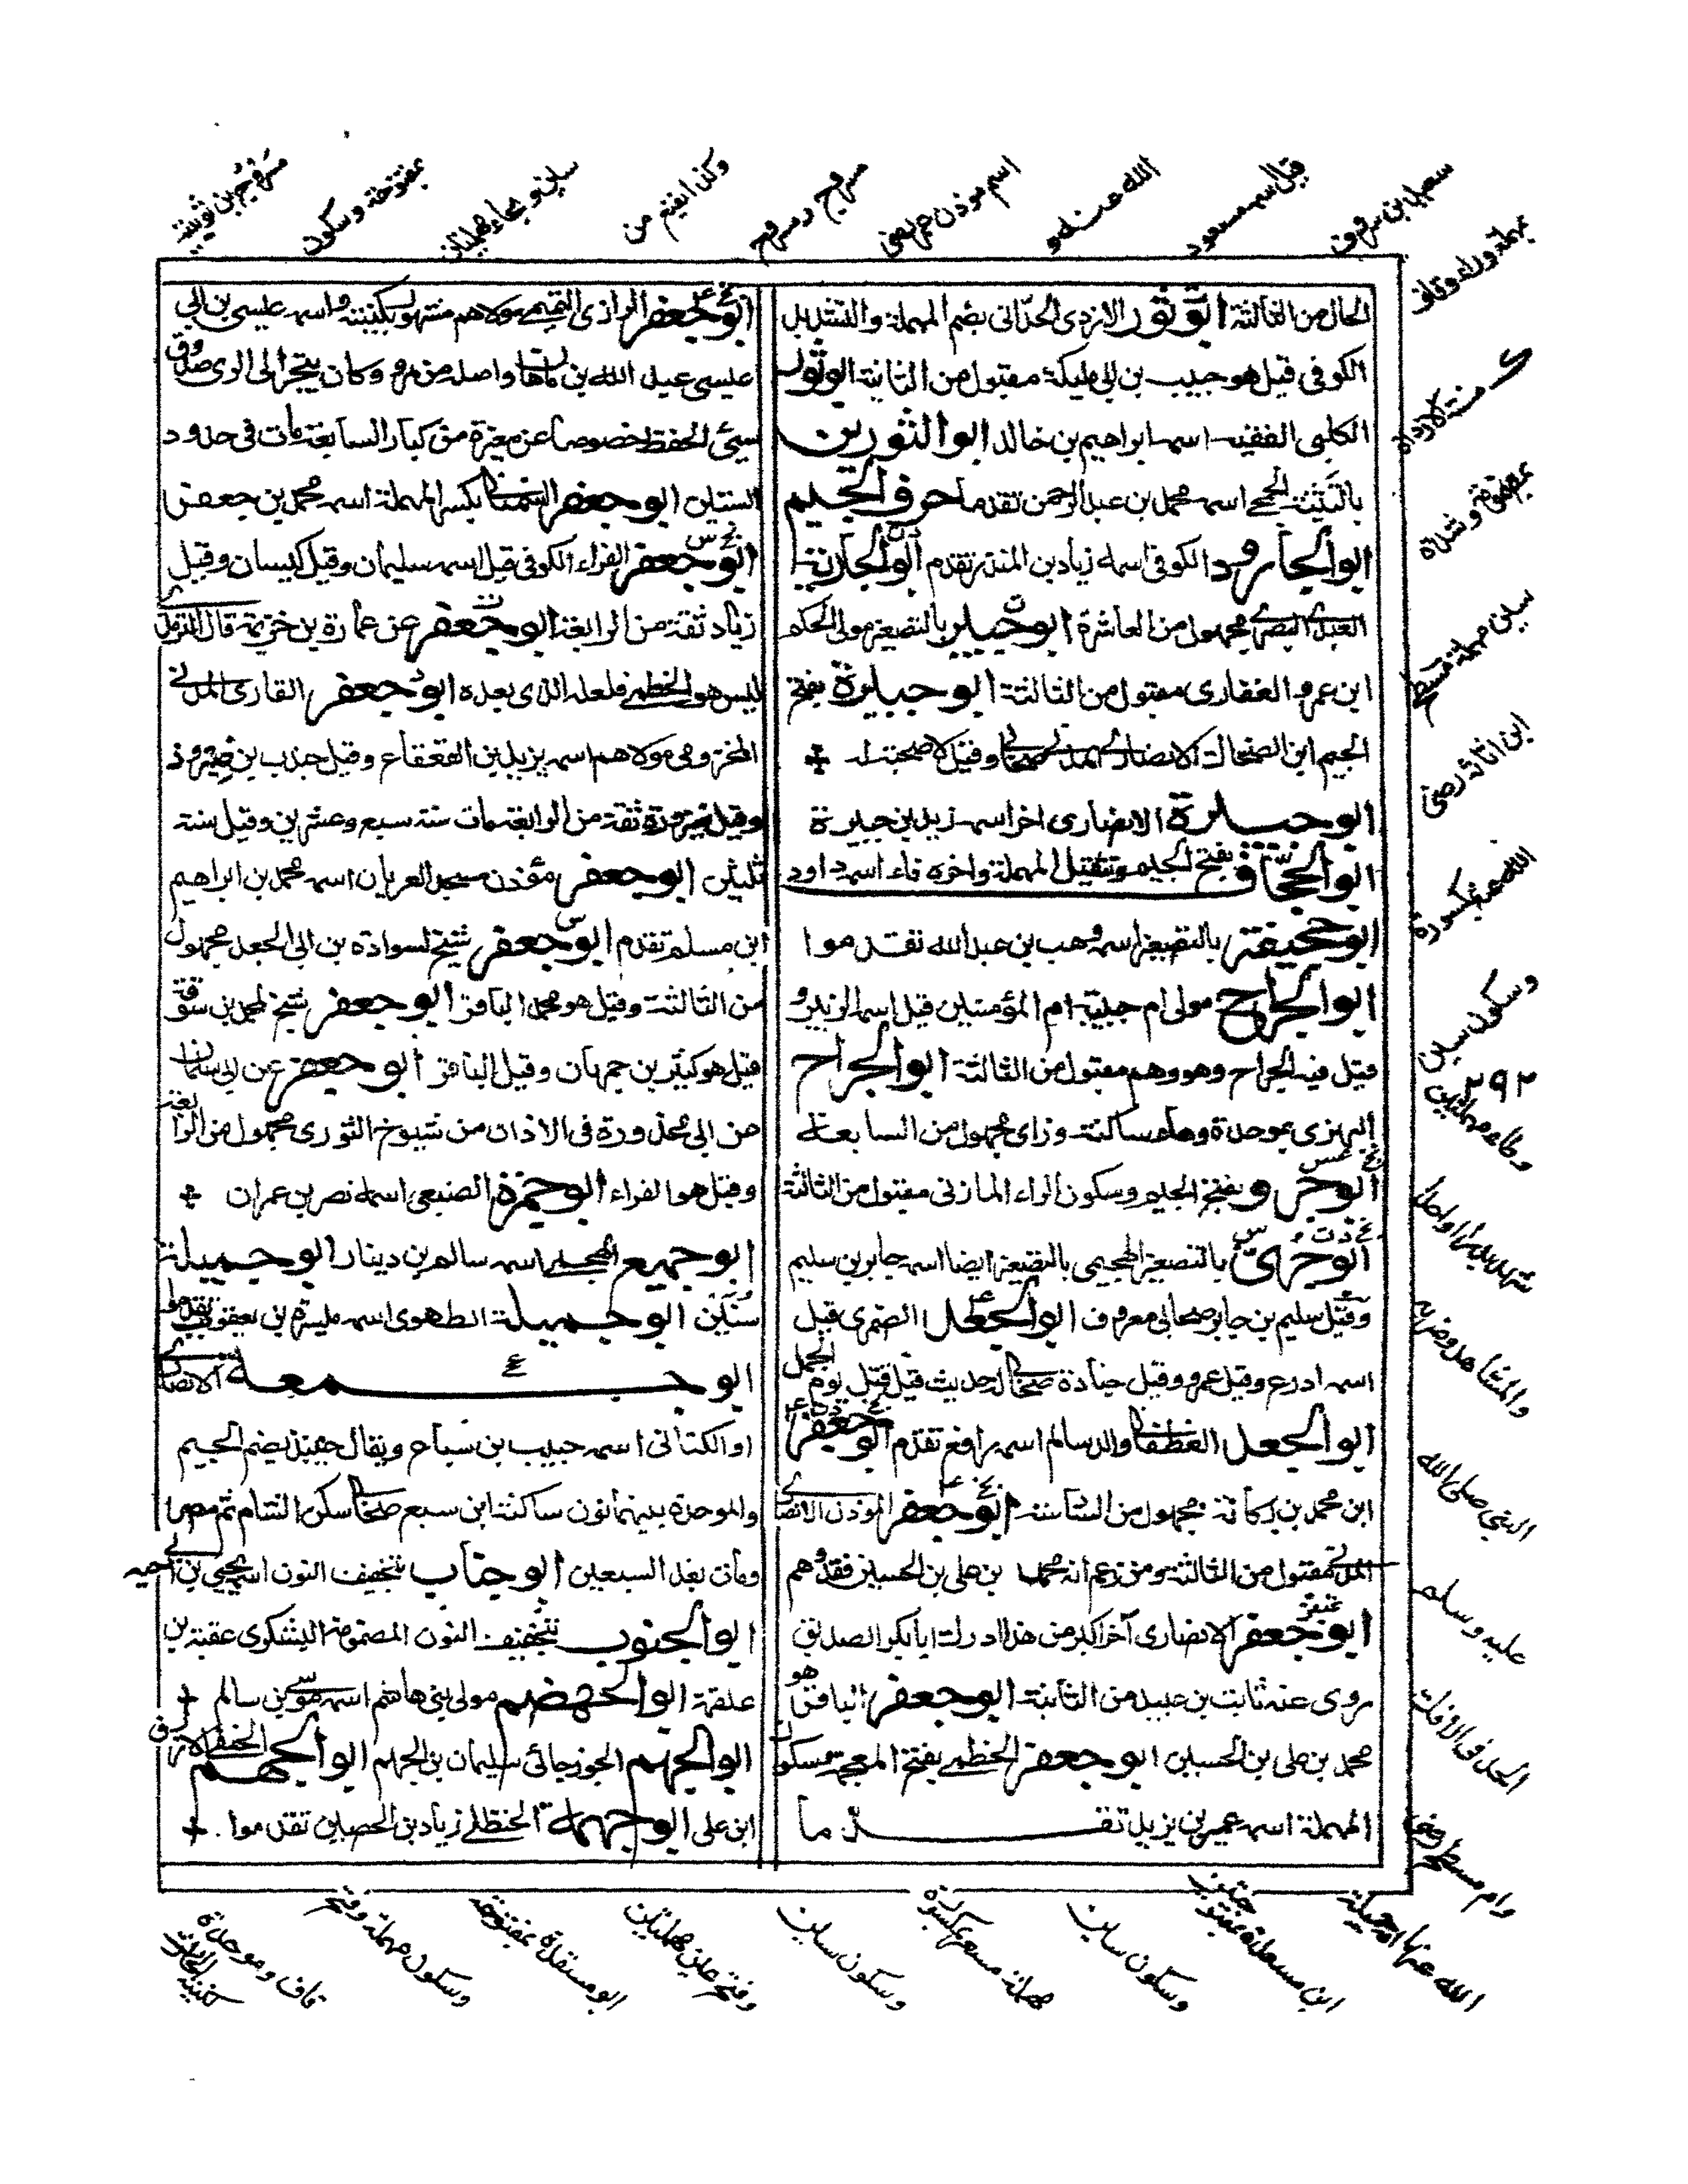 الحال من الثالثة ابو ثور الازدى الحدّانى بضم المهملة والتشديد
الكوفى قيل هو حبيب بن ابى مليكة مقبول من الثانية ابو ثور
الكلبى الفقيه اسمه ابراهيم بن خالد ابو الثورين
بالتثنية الجمحى اسمه محمد بن عبد الرحمن تقدما حرف الجيم
ابو الجارود الكوفى اسمه زياد بن المنذر تقدم ابو الجارية
العبدى البصرى مجهول من العاشرة ابو جبير بالتصغير مولى الحكم
ابن عمرو الغفارى مقبول من الثالثة ابو جبيرة بفتح
الجيم ابن الضحاك الانصارى المدنى صحابى وقيل لا صحبة له
ابو جبيرة الانصارى اخر اسمه زيد بن جبيرة
ابو الجحاف بفتح الجيم وتثقيل المهملة واخره فاء اسمه داود
ابو جحيفة بالتصغير اسمه وهب بن عبد الله تقدموا
ابو الجراح مولى ام حبيبة ام المؤمنين قيل اسمه الزبير و
قيل فيه الجراح وهو وهم مقبول من الثالثة ابو الجراح
البهزى بموحدة وهاء ساكنة وزاى مجهول من السابعة
ابو جرو بفتح الجيم وسكون الراء المازنى مقبول من الثالثة
ابو جرىّ بالتصغير الهجيمى بالتصغير ايضا اسمه جابر بن سليم
وقيل سليم بن جابر صحابى معروف ابو الجعد الضمرى قيل
اسمه ادرع وقيل عمرو وقيل جنادة صحابى له حديث قيل قتل يوم الجمل
ابو الجعد الغطفانى والد سالم اسمه رافع تقدم ابو جعفر
ابن محمد بن ركانة مجهول من السادسة ابو جعفر المؤذن الانصارى
المدنى مقبول من الثالثة ومن زعم انه محمد بن على بن الحسين فقد وهم
ابو جعفر الانصارى آخر اكبر من هذا ادرك ابا بكر الصديق
روى عنه ثابت بن عبيد من الثانية ابو جعفر الباقر هو
محمد بن على بن الحسين ابو جعفر الخطمى بفتح المعجمة وسكون
المهملة اسمه عمير بن يزيد تقدما
ابو جعفر الرازى التميمى مولاهم مشهور بكنيته واسمه عيسى بن ابى
عيسى عبد الله بن ماهان واصله من مرو وكان يتجر الى الرى صدوق
سيئ الحفظ خصوصا عن مغيرة من كبار السابعة مات فى حدود
الستين ابو جعفر السمنانى بكسر المهملة اسمه محمد بن جعفر
ابو جعفر الفراء الكوفى قيل اسمه سليمان وقيل كيسان وقيل
زياد ثقة من الرابعة ابو جعفر عن عمارة بن خزيمة قال الترمذى
ليس هو الخطمى فلعله الذى بعده ابو جعفر القارى المدنى
المخزومى مولاهم اسمه يزيد بن القعقاع وقيل جندب بن فيروز
وقيل فيروز ثقة من الرابعة مات سنة سبع وعشرين وقيل سنة
ثلثين ابو جعفر مؤذن مسجد العريان اسمه محمد بن ابراهيم
ابن مسلم تقدم ابو جعفر شيخ لسوادة بن ابى الجعد مجهول
من الثالثة وقيل هو محمد الباقر ابو جعفر شيخ لمحمد بن سوقة
قيل هو كثير بن جمهان وقيل الباقر ابو جعفر عن ابى سلمان
عن ابى محذورة فى الاذان من شيوخ الثورى مجهول من الرابعة
وقيل هو الفراء ابو جمرة الضبعى اسمه نصر بن عمران
ابو جميع الهجيمى اسمه سالم بن دينار ابو جميلة
سُنَين ابو جميلة الطهوى اسمه ميسرة بن يعقوب تقدموا
ابو جمعة الانصارى
او الكنانى اسمه حبيب بن سباع ويقال جنبذ بضم الجيم
والموحدة بينهما نون ساكنة ابن سبع صحابى سكن الشام ثم مصر
ومات بعد السبعين ابو جناب بتخفيف النون اسمه يحيى بن ابى حيه
ابو الجنوب بتخفيف النون المضمومة اليشكرى عقبة بن
علقمة ابو الجهضم مولى بنى هاشم اسمه موسى بن سالم
ابو الجهم الجوزجانى سليمان بن الجهم ابو الجهم الحنفى الازرق
ابن على ابو جهمة الحنظلى زياد بن الحصين تقدموا
سهيل ابن مروق
قيل اسمه مسعود
الله عنه و
اسم موذن عمر رضى
وكذا يفتح من
سين و بحاء مهملتان
بمفتوحة وسكون
بمهملة وراء وقاف
بمضمومة وشدة
سين مهملة مسطح
ابن اثاثة رضى
الله عنه بمكسورة
وسكون سين
٢٩٢
وطاء وحاء مهملتين
شهد بدرا واحدا
والمشاهد وضربه
النبى صلى الله
عليه وسلم
الحد فى الافك
وام مسطح رضى
الله عنها
وسكون سين
مهملة مسعر بمكسورة
وسكون سين
وفتح عين مهملتين
ابو مسقلة بمفتوحة
وسكون مهملة وفتح
قاف وموحدة